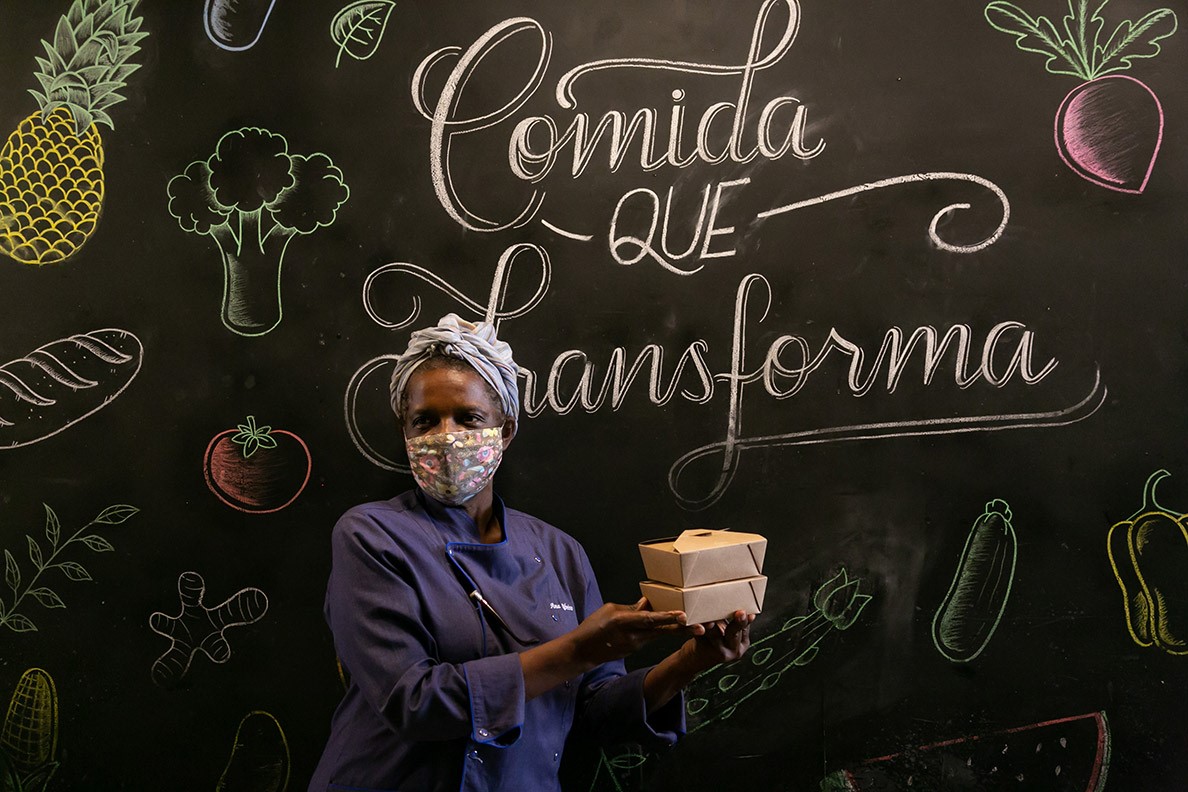 Comida
QUE
Transforma
Ana